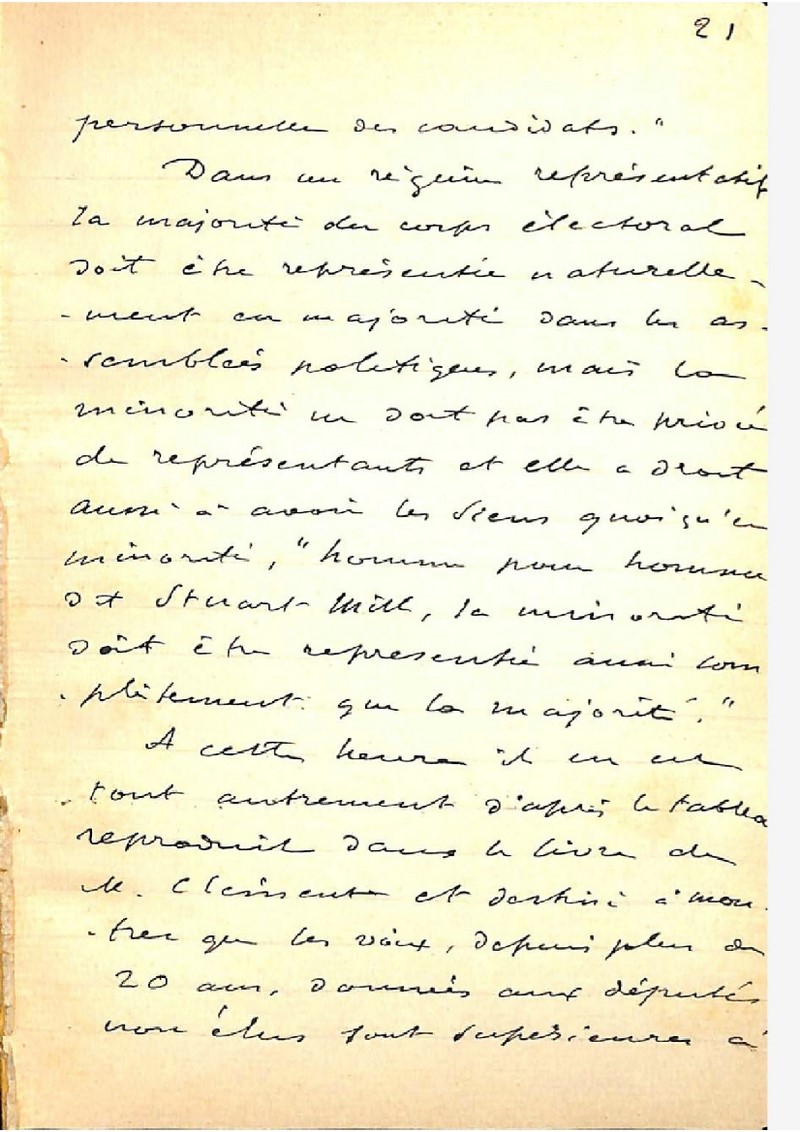 21
personnelle des candidats."
Dans un régime représentatif
la majorité du corps électoral
doit être représentée naturelle-
-ment en majorité dans les as-
-semblées politiques, mais la
minorité ne doit pas être privée
de représentants et elle a droit
aussi à avoir les siens quoiqu'en
minorité, "homme pour homme
dit Stuart Mill, la minorité
doit être représentée aussi com
-plètement que la majorité."
A cette heure il en est
tout autrement d'après le tablea
reproduit dans le livre de
M. Clément et destiné à mon-
-trer que les voix, depuis plus de
20 ans, données aux députés
non élus sont supérieures à